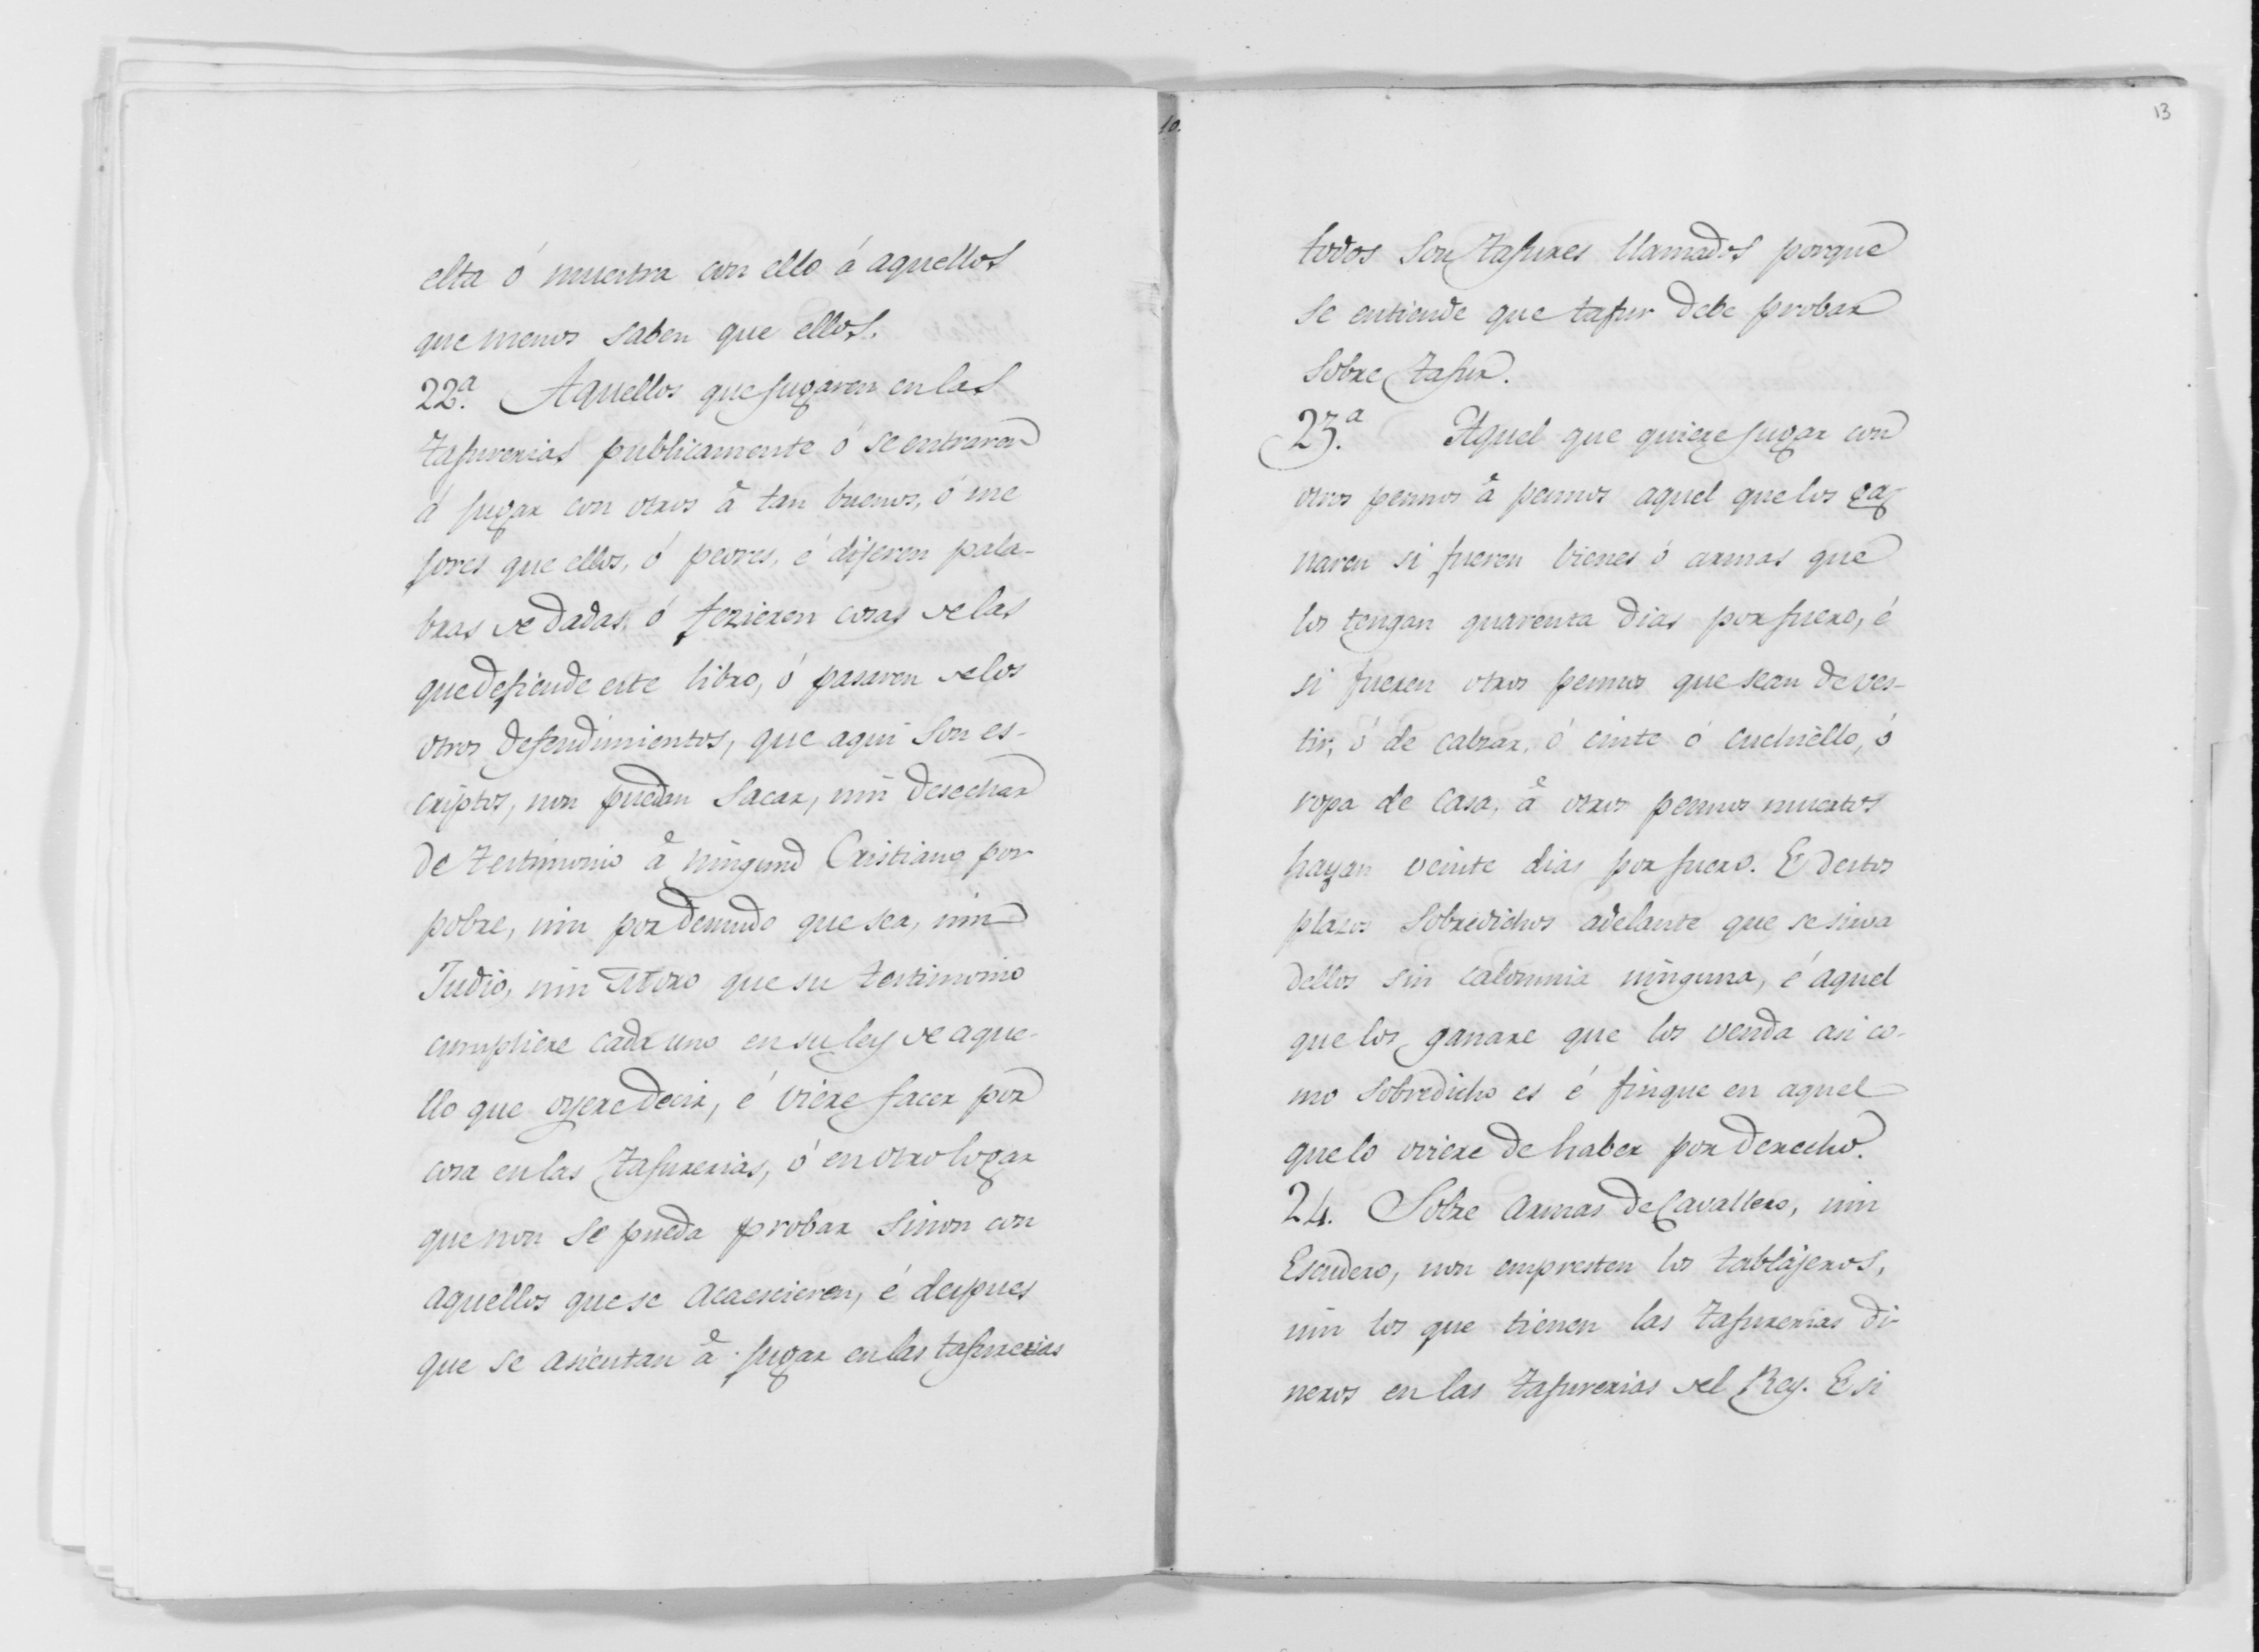 elta ó muestra con ello á aquellos
que menos saben que ellos.
22.ª Aquellos que jugaren en las
tafurerias publicamente ó se entraren
á jugar con otros ã tan buenos, ó me
jores que ellos, ó peores, é dijeren pala-
bras vedadas, ó fezieren cosas de las
que defiende este libro, ó pasaren de los
otros defendimientos, que aqui son es-
criptos, non puedan sacar, nin desechar
de testimonio ã ningund Cristiano por
pobre, nin por denudo que sea, nin
Judio, nin Moro que su testimonio
cumpliere cada uno en su ley de aque-
llo que oyere decir, é viere facer por
cosa en las tafurerias, ó en otro logar
que non se pueda probar sinon con
aquellos que se acaescieren, é despues
que se asientan ã jugar en las tafurerias
10.
13
todos son tafures llamados porque
se entiende que tafur debe probar
sobre tafur.
23.ª Aquel que quiere jugar con
otros pennos ã pennos aquel que los ga
naren si fueren bienes ó armas que
los tengan quarenta dias por fuero, é
si fueren otros pennos que sean de ves-
tir, ó de calzar, ó cinto ó cuchiello, ó
ropa de casa, ã otros pennos muertos
hayan veinte dias por fuero. E destos
plazos sobredichos adelante que se sirva
dellos sin calomnia ninguna, é aquel
que los ganare que los venda asi co-
mo sobredicho es é finque en aquel
que lo oviere de haber por derecho.
24. Sobre armas de Cavallero, nin
Escudero, non empresten los tablajeros,
nin los que tienen las tafurerias di-
neros en las tafurerias del Rey. E si